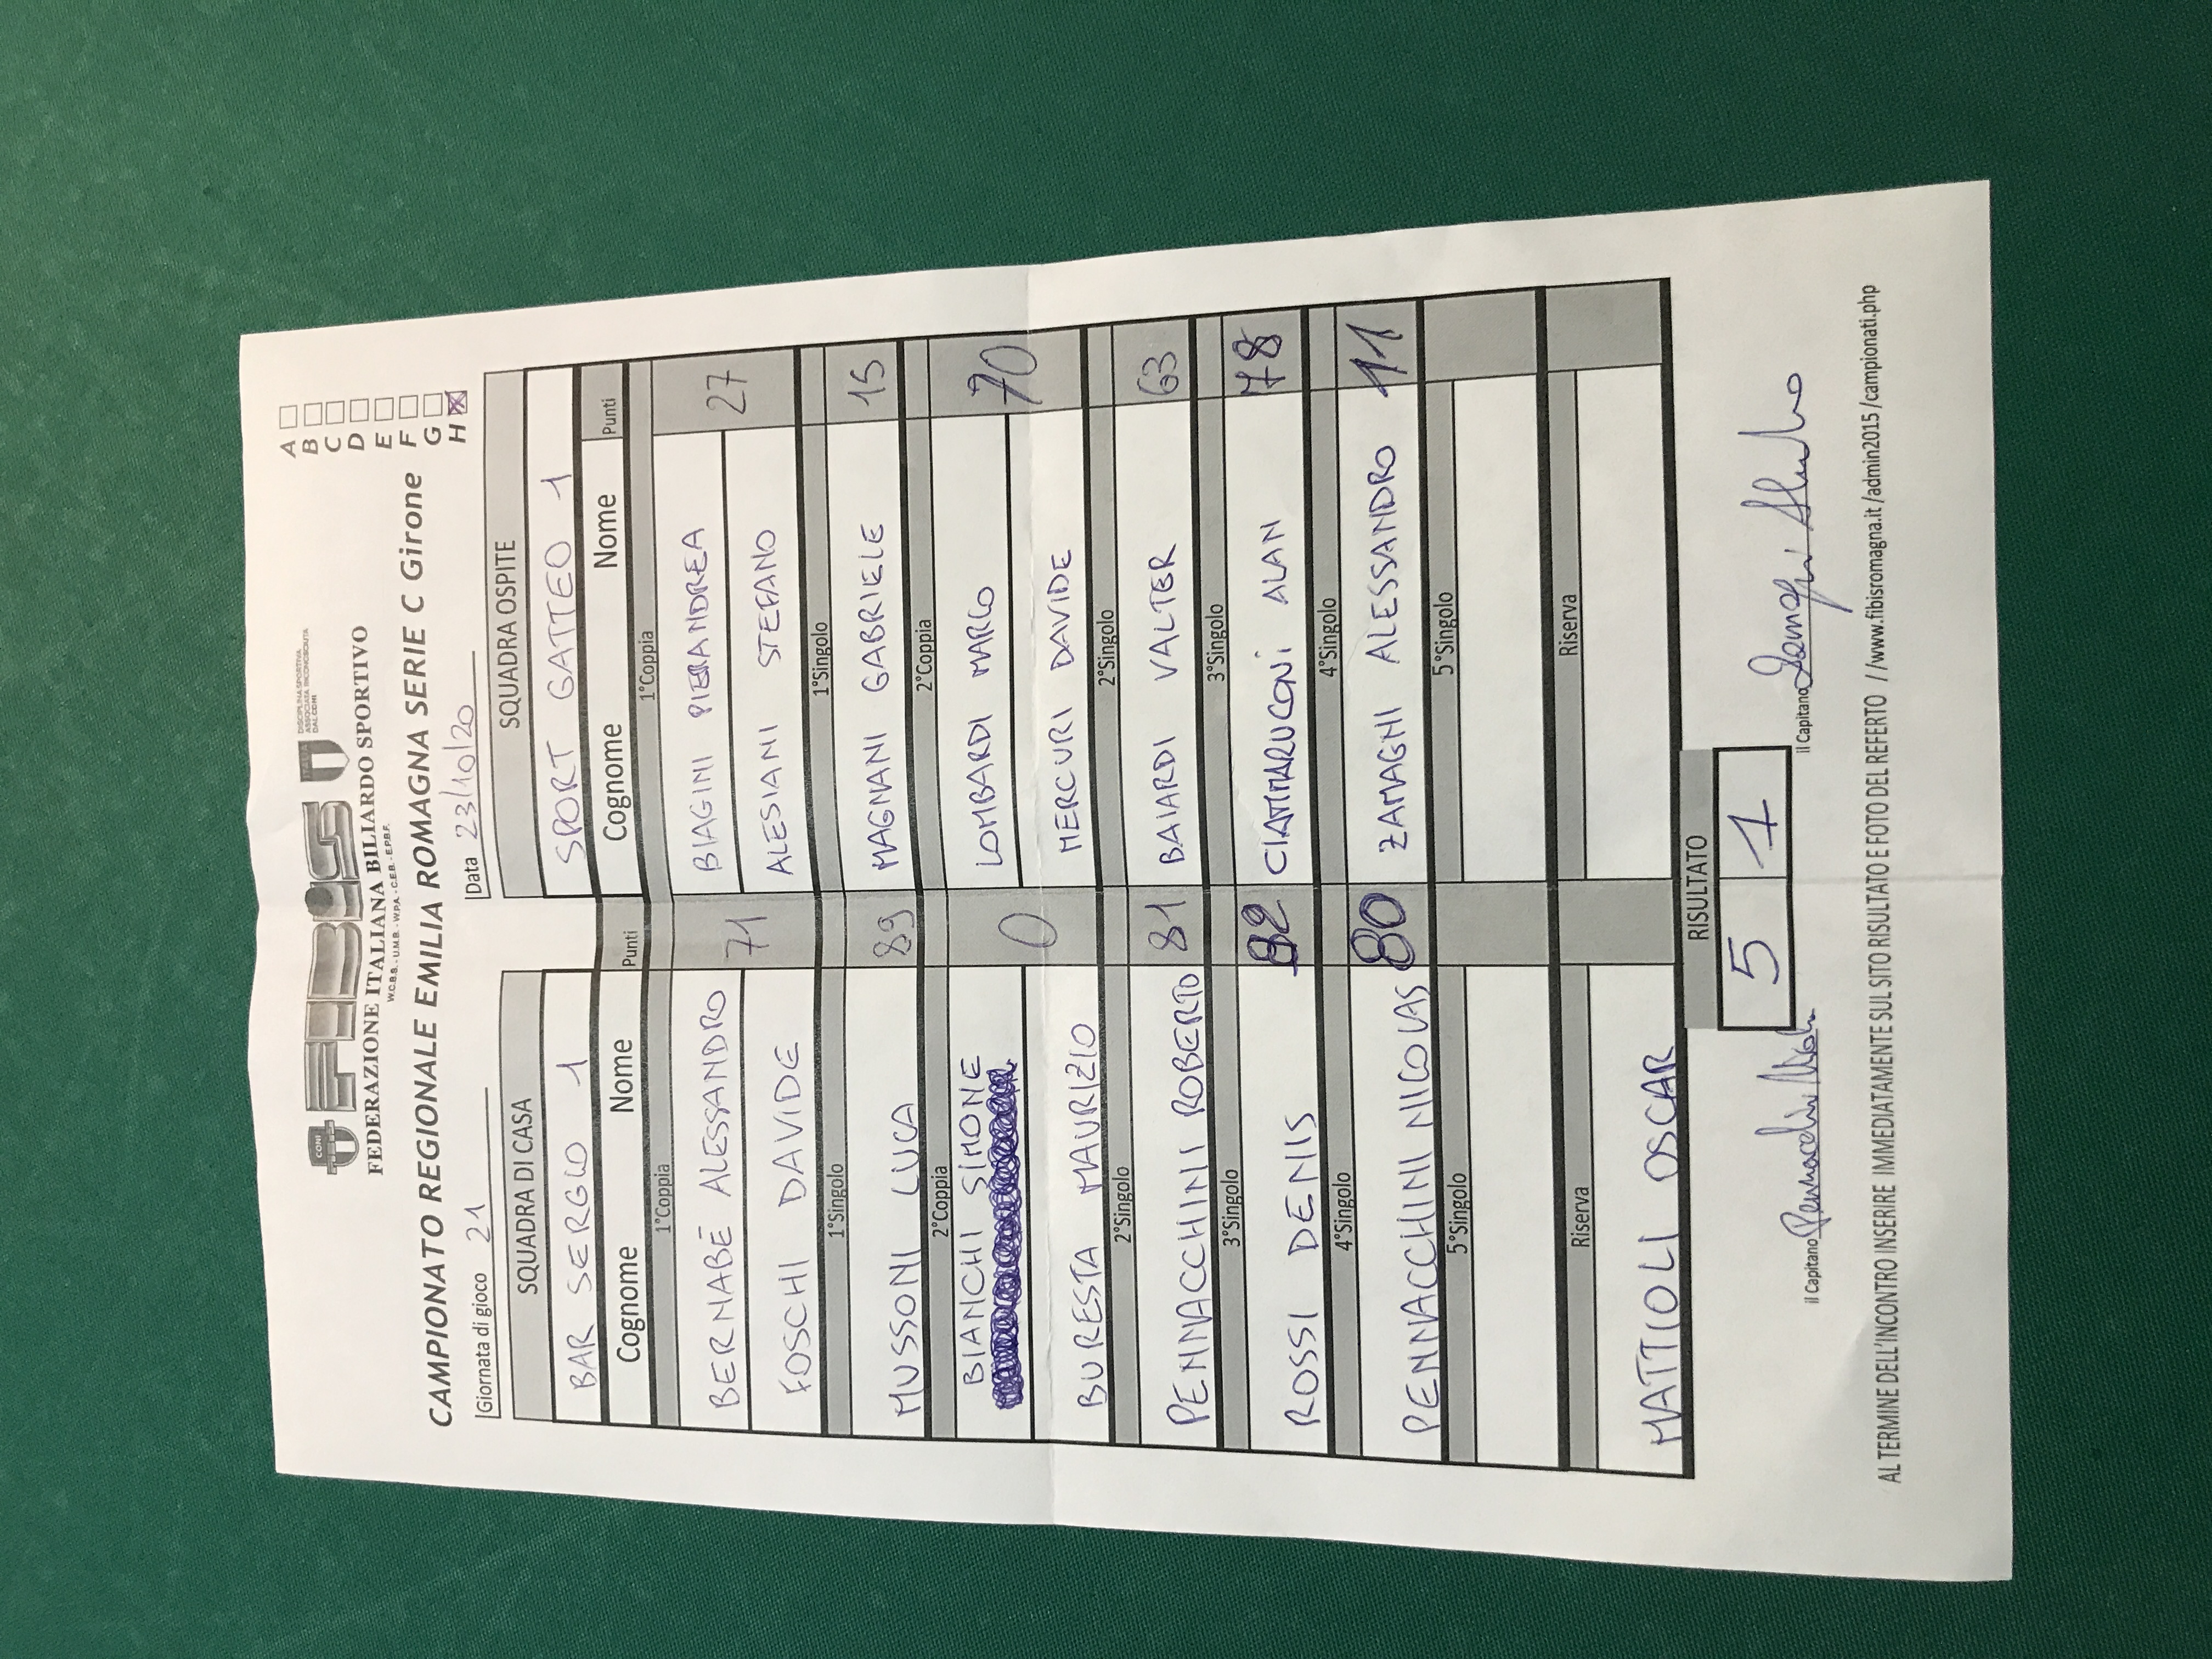 CONI
FIBIS
DISCIPLINA SPORTIVA
ASSOCIATA RICONOSCIUTA
DAL CONI
FEDERAZIONE ITALIANA BILIARDO SPORTIVO
W.C.B.S. - U.M.B. - W.P.A. - C.E.B. - E.P.B.F.
CAMPIONATO REGIONALE EMILIA ROMAGNA SERIE C Girone
A
B
C
D
E
F
G
H X
Giornata di gioco 21 Data 23/10/20
SQUADRA DI CASA SQUADRA OSPITE
BAR SERGIO 1 SPORT GATTEO 1
Cognome Nome Punti Cognome Nome Punti
1°Coppia 1°Coppia
BERNABÈ ALESSANDRO 71 BIAGINI PIERANDREA 27
FOSCHI DAVIDE ALESIANI STEFANO
1°Singolo 1°Singolo
MUSSONI LUCA 89 MAGNANI GABRIELE 15
2°Coppia 2°Coppia
BIANCHI SIMONE 0 LOMBARDI MARCO 70
BURESTA MAURIZIO MERCURI DAVIDE
2°Singolo 2°Singolo
PENNACCHINI ROBERTO 81 BAIARDI VALTER 63
3°Singolo 3°Singolo
ROSSI DENIS 82 CIAMMARUCONI ALAN 78
4°Singolo 4°Singolo
PENNACCHINI NICOLAS 80 ZAMAGNI ALESSANDRO 11
5°Singolo 5°Singolo
Riserva Riserva
MATTIOLI OSCAR
RISULTATO
5 1
il Capitano il Capitano
AL TERMINE DELL'INCONTRO INSERIRE IMMEDIATAMENTE SUL SITO RISULTATO E FOTO DEL REFERTO //www.fibisromagna.it /admin2015 /campionati.php